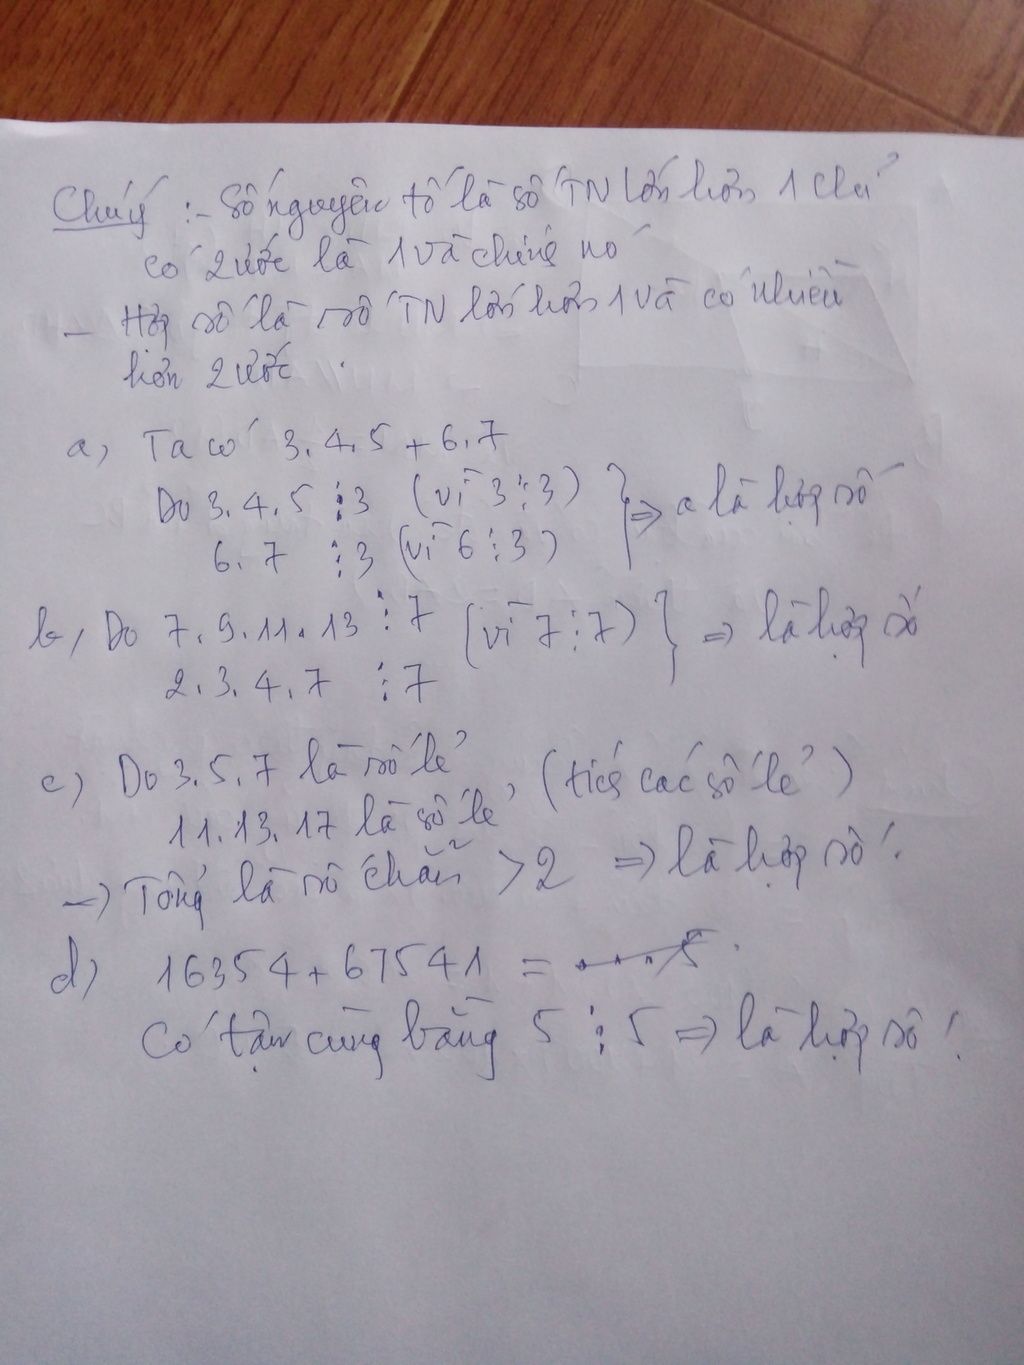 Chú ý :- Số nguyên tố là số TN lớn hơn 1 chỉ
có 2 ước là 1 và chính nó
- Hợp số là số TN lớn hơn 1 và có nhiều
hơn 2 ước .
a, Ta có 3.4.5 + 6.7
Do 3.4.5 ⋮ 3 (vì 3 ⋮ 3) } => a là hợp số
6.7 ⋮ 3 (vì 6 ⋮ 3)
b, Do 7.9.11.13 ⋮ 7 (vì 7 ⋮ 7) } => là hợp số
2.3.4.7 ⋮ 7
c) Do 3.5.7 là số lẻ
11.13.17 là số lẻ , (tích các số lẻ)
-> Tổng là số chẵn > 2 => là hợp số .
d) 16354 + 67541 = ....5 .
Có tận cùng bằng 5 ⋮ 5 => là hợp số .